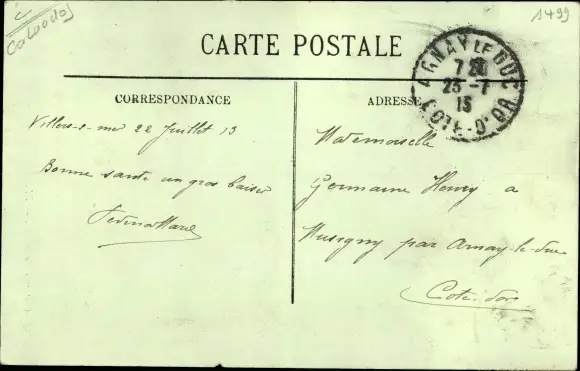 Calvados
1499
CARTE POSTALE
ARNAY LE DUC
7 20
23-7
13
COTE-D'OR
CORRESPONDANCE
ADRESSE
Villers-s-mer 22 Juillet 13
Bonne santé un gros baiser
Mademoiselle
Germaine Henry a
Musigny par Arnay-le-duc
Cote-d'or